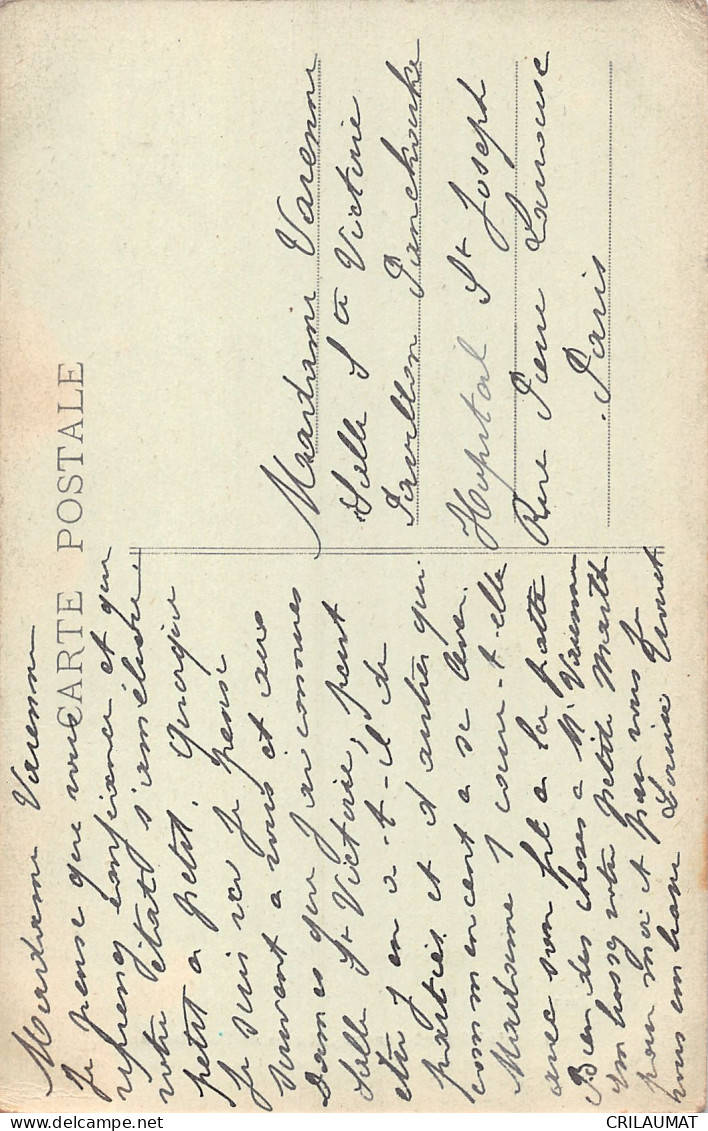 CARTE POSTALE
Madame Varenne
Je pense que vous
reprenez confiance et que
votre état s'améliore,
petit a petit. Quoique
Je suis ici Je pense
souvent a vous et aux
Dames que J'ai connues
Salle Ste Victorie, peut
etre y en a-t-il de
parties et d'autres qui
commencent a se lever.
Madame J cour-t-elle
avec son fil a la patte
Bien des choses a Mr Varenne
Embrassez votre petite Marthe
pour moi et pour vous Je
vous embrasse Louise
Madame Varenne
Salle Ste Victorie
Pavillon Panckouke
Hopital St Joseph
Rue Pierre Larousse
Paris
delcampe.net
CRILAUMAT